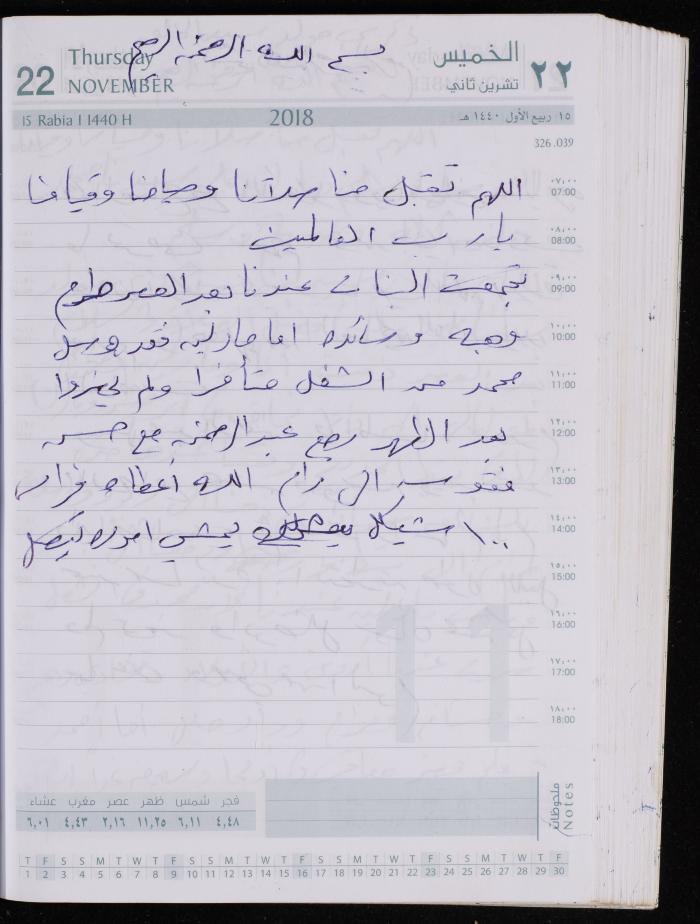 بسم الله الرحمن الرحيم
Thursday
22 NOVEMBER
الخميس
٢٢ تشرين ثاني
15 Rabia I 1440 H
2018
١٥ ربيع الأول ١٤٤٠ هـ
326 .039
اللهم تقبل منا صلاتنا وصيامنا وقيامنا
يا رب العالمين
تجمعت البنات عندنا بعد العصر
وهبه وسائده اما فقد وصل
محمد من الشغل متأخرا ولم يحضروا
بعد الظهر رجع عبد الرحمن مع حسن
الى رام الله أعطاه
١٠٠ شيكل يمشي اموره
٠٧,٠٠
07:00
٠٨,٠٠
08:00
٠٩,٠٠
09:00
١٠,٠٠
10:00
١١,٠٠
11:00
١٢,٠٠
12:00
١٣,٠٠
13:00
١٤,٠٠
14:00
١٥,٠٠
15:00
١٦,٠٠
16:00
١٧,٠٠
17:00
١٨,٠٠
18:00
11
ملحوظات
Notes
فجر شمس ظهر عصر مغرب عشاء
٤,٤٨ ٦,١١ ١١,٢٥ ٢,١٦ ٤,٤٣ ٦,٠١
T F S S M T W T F S S M T W T F S S M T W T F S S M T W T F
1 2 3 4 5 6 7 8 9 10 11 12 13 14 15 16 17 18 19 20 21 22 23 24 25 26 27 28 29 30